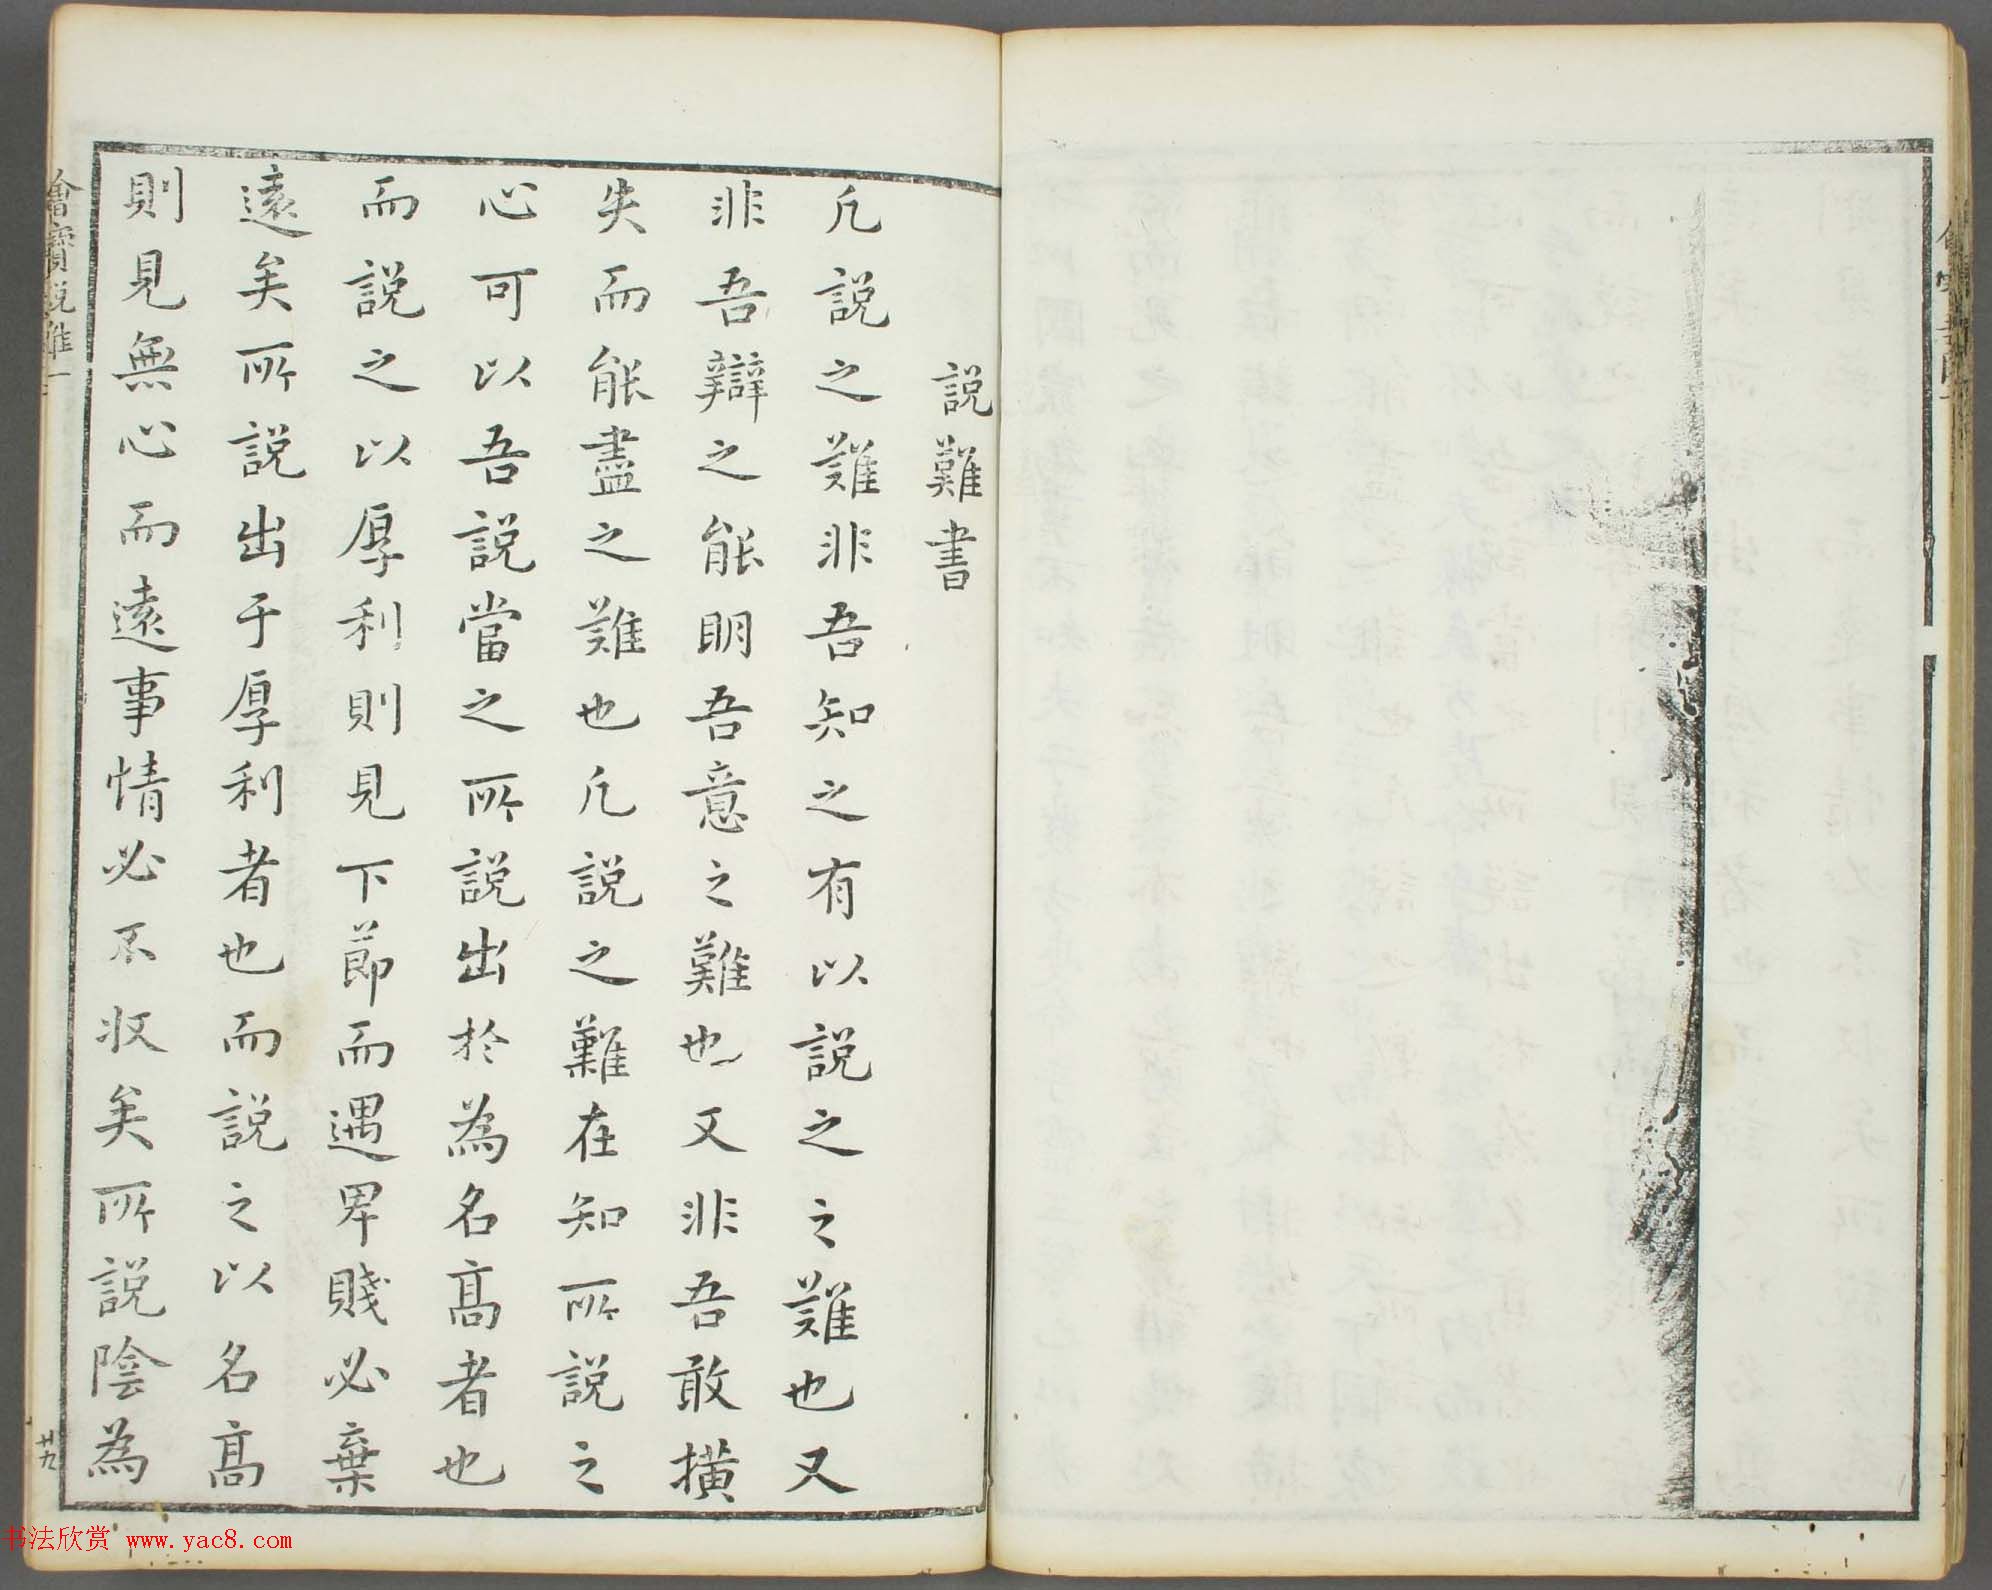 說難書
凢說之難非吾知之有以說之之難也又
非吾辯之能明吾意之難也又非吾敢橫
失而能盡之難也凢說之難在知所說之
心可以吾說當之所說出於為名髙者也
而說之以厚利則見下節而遇卑賤必棄
遠矣所說出于厚利者也而說之以名髙
則見無心而遠事情必不収矣所說陰為
繪寶說難一
廿九
书法欣赏 www.yac8.com